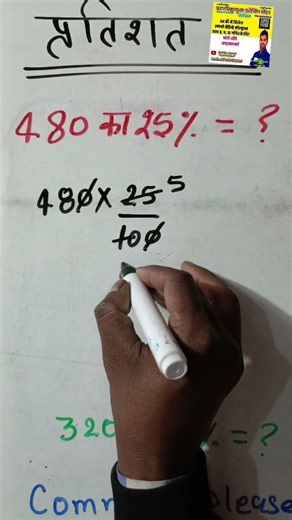 प्रतिशत
480 का 25% = ?
480 × 25 5
100
320 % = ?
Comm lease